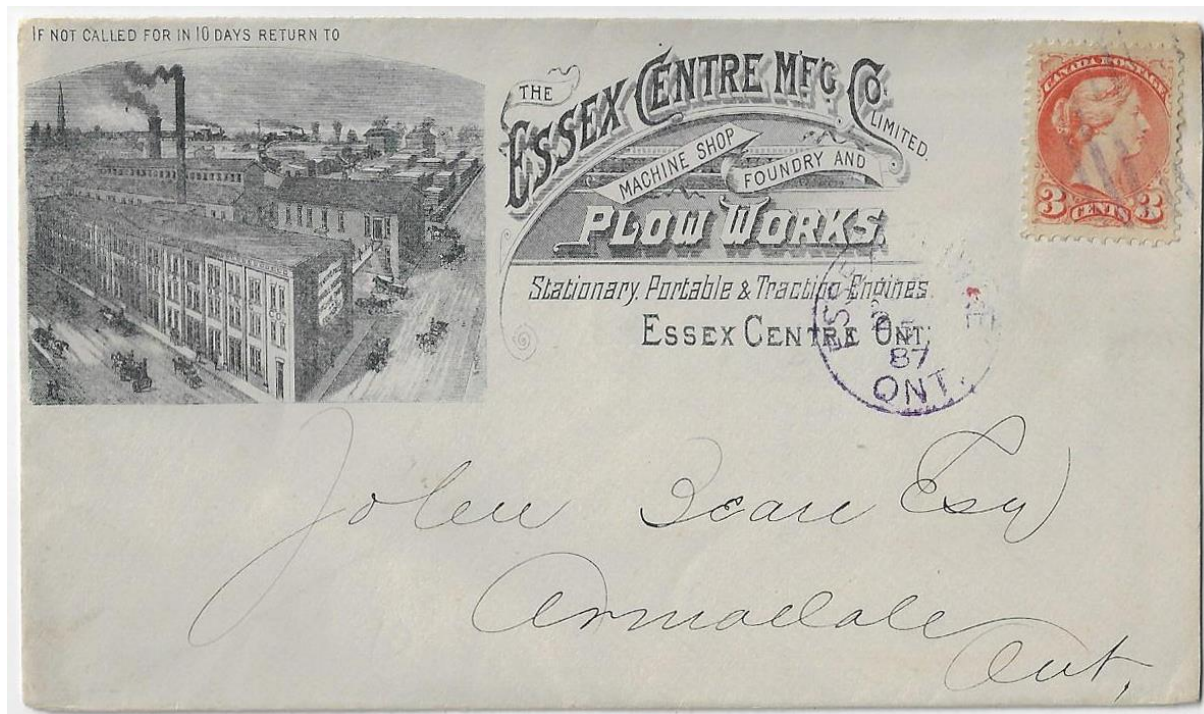 IF NOT CALLED FOR IN 10 DAYS RETURN TO
THE
ESSEX CENTRE M'F'G CO.
LIMITED.
MACHINE SHOP
FOUNDRY AND
PLOW WORKS.
Stationary, Portable & Traction Engines
ESSEX CENTRE ONT.
CANADA POSTAGE
3 CENTS 3
87
ONT.
John Bean Esq
Armadale
Ont,